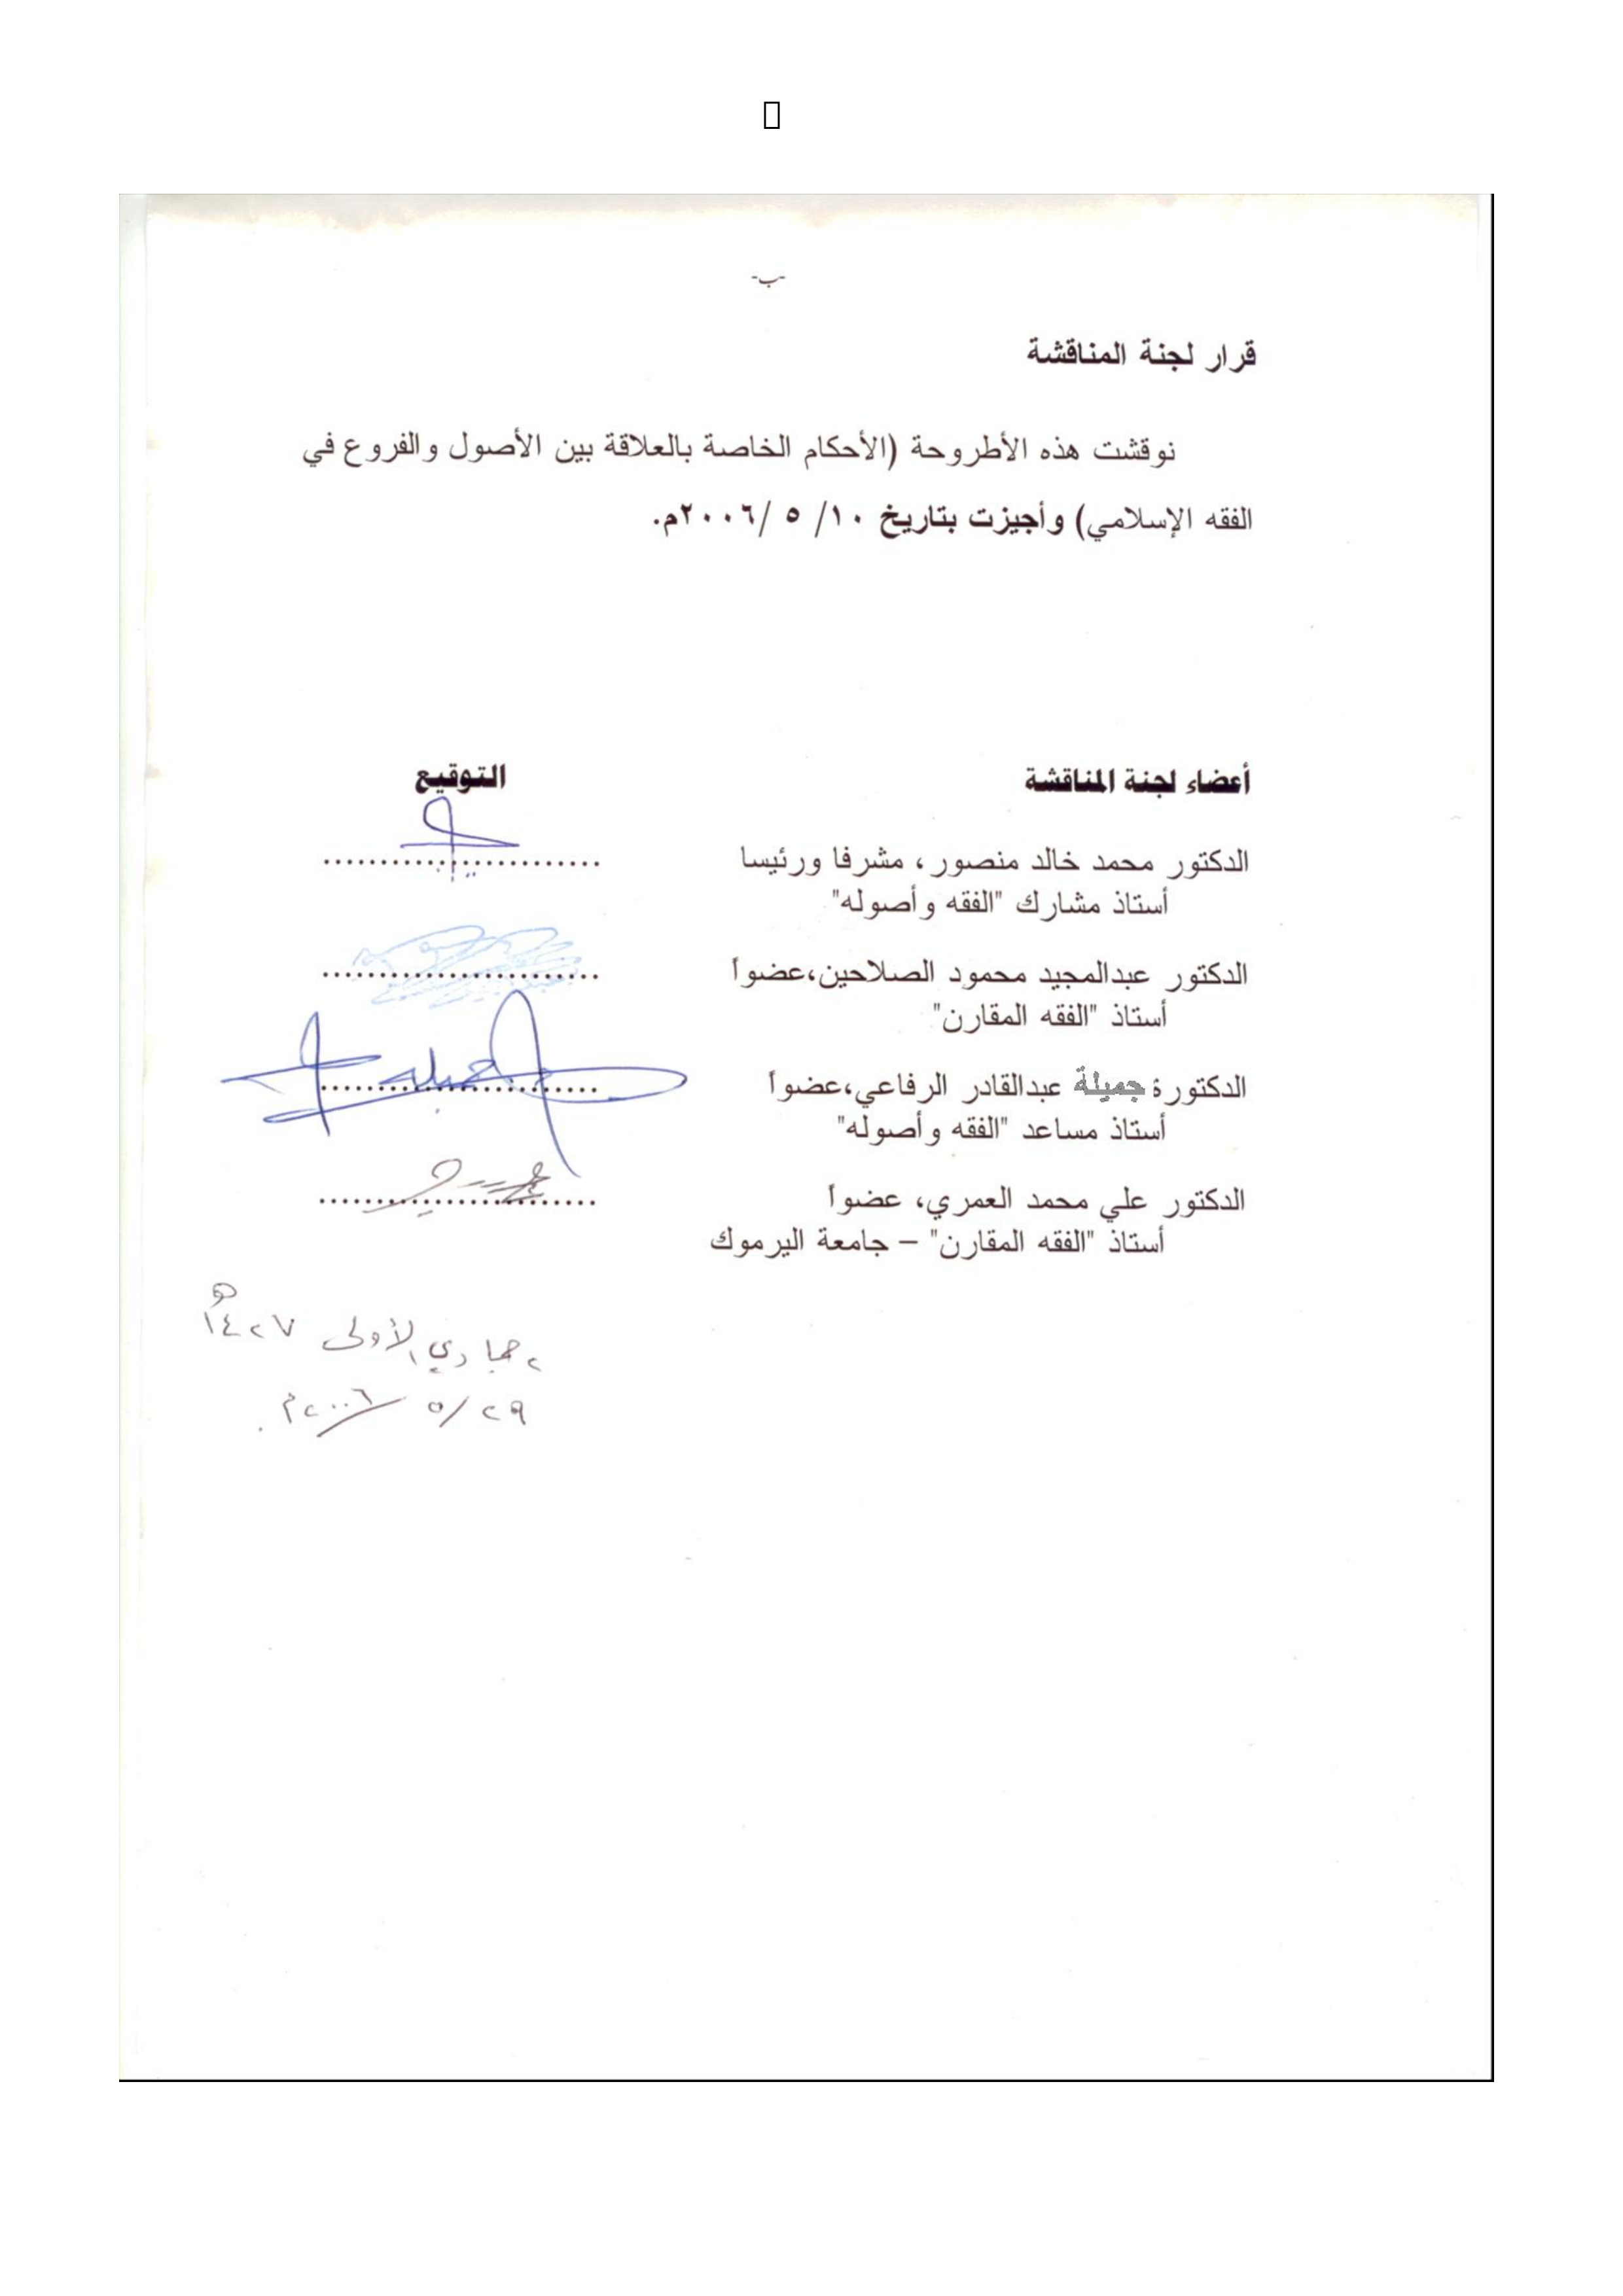 -ب-
قرار لجنة المناقشة
نوقشت هذه الأطروحة (الأحكام الخاصة بالعلاقة بين الأصول والفروع في
الفقه الإسلامي) وأجيزت بتاريخ ١٠/ ٥ /٢٠٠٦م.
أعضاء لجنة المناقشة التوقيع
الدكتور محمد خالد منصور، مشرفا ورئيسا ........................
أستاذ مشارك "الفقه وأصوله"
الدكتور عبدالمجيد محمود الصلاحين،عضواً ........................
أستاذ "الفقه المقارن"
الدكتورة جميلة عبدالقادر الرفاعي،عضواً ........................
أستاذ مساعد "الفقه وأصوله"
الدكتور علي محمد العمري، عضواً ........................
أستاذ "الفقه المقارن" – جامعة اليرموك
٢ جمادي الأولى ١٤٢٧هـ
٢٩/ ٥/ ٢٠٠٦م.